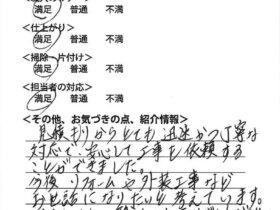 満足 普通 不満
<仕上がり>
満足 普通 不満
<掃除・片付け>
満足 普通 不満
<担当者の対応>
満足 普通 不満
<その他、お気づきの点、紹介情報>
見積もりからとても迅速かつ丁寧な
対応で、安心して工事を依頼する
ことができました。
今後リフォームや外装工事など
お世話になりたいと考えています。